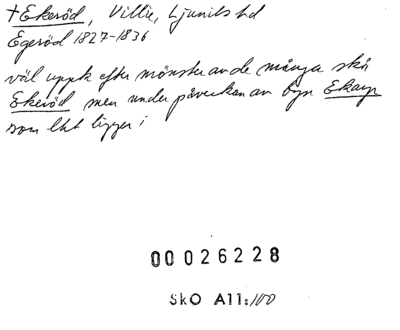 †Ekeröd, Villie, Ljunits hd
Egeröd 1827-1836
väl uppk efter mönster av de många skå
Ekeröd men under påverkan av byn Ekarp
som lht ligger i
00026228
SkO A11:100